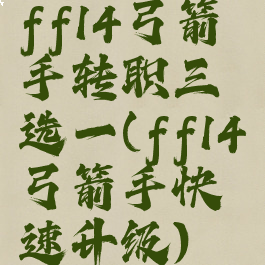 ff14弓箭
手转职三
选一(ff14
弓箭手快
速升级)